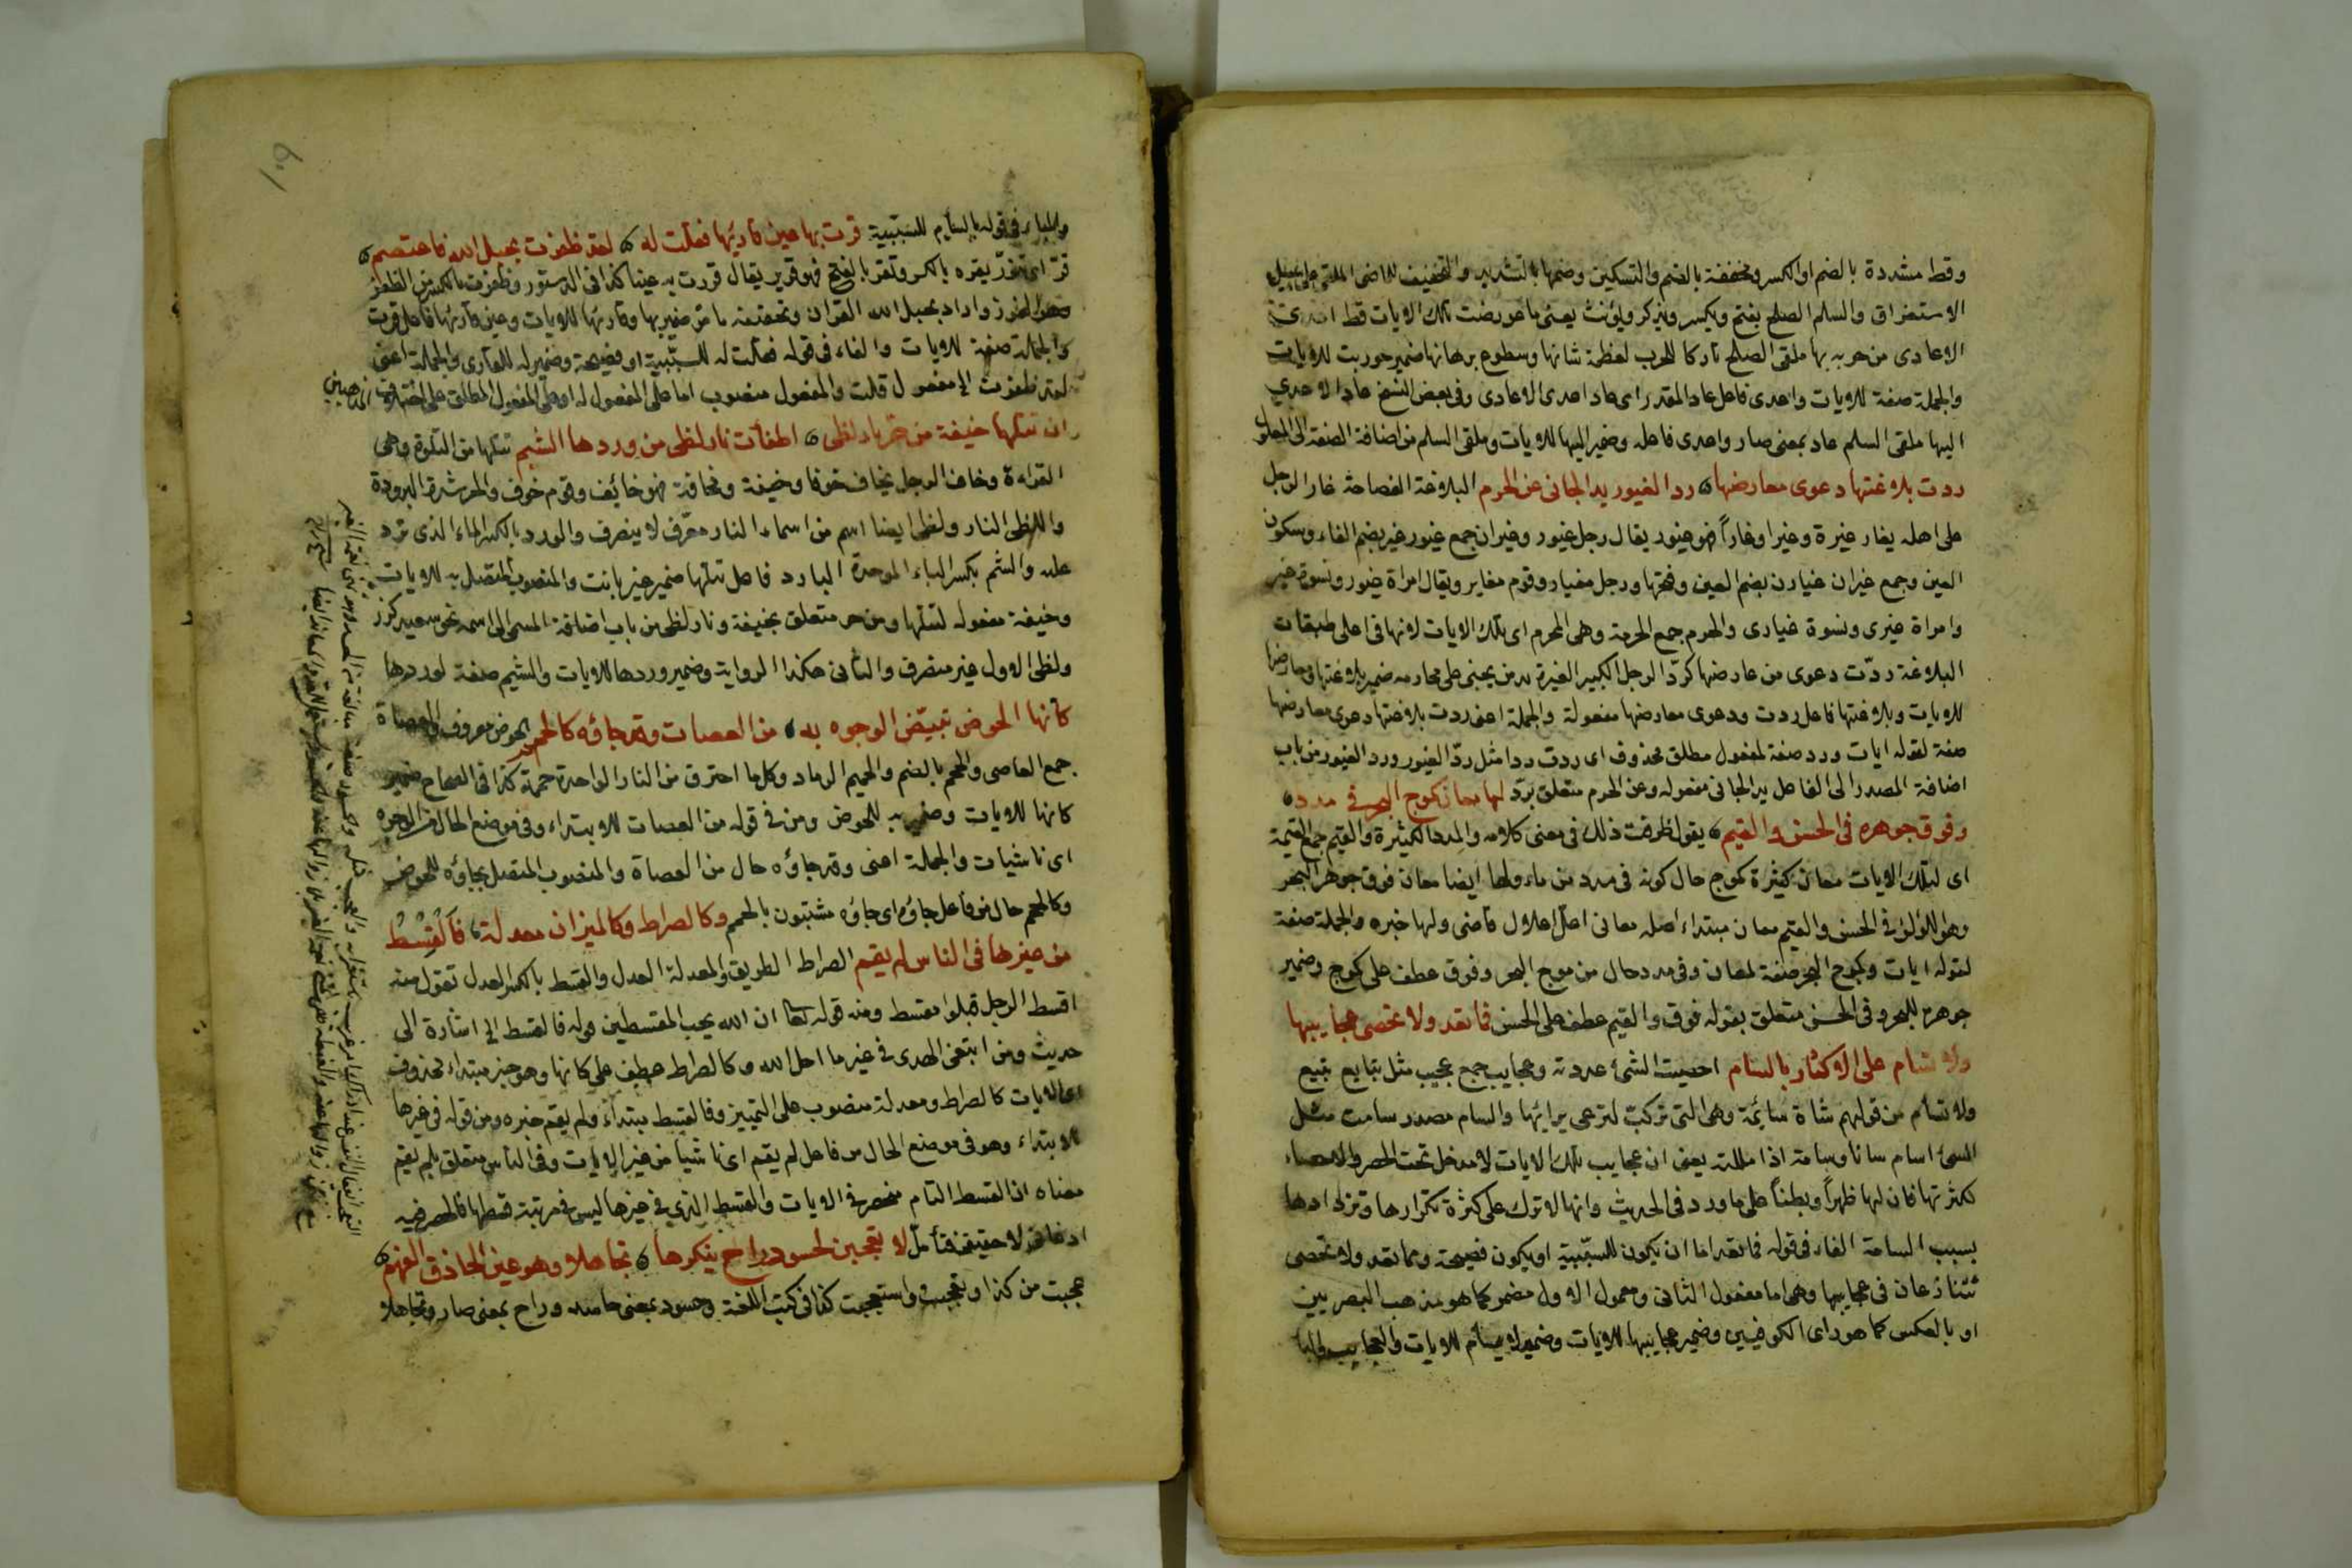 وقط مشددة بالضم او الكسر ومخففة بالضم والتسكين وضمها بالتشديد والتخفيف للماضى المنفى على سبيل
الاستغراق والسلم الصلح بفتح ويكسر ويذكر ويؤنث يعنى ما عورضت تلك الايات قط
الاعادى من حربه بها ملقى الصلح تاركا للحرب لعظمة شانها وسطوع برهانها ضمير حوربت للايات
والجملة صفة للايات واعدى فاعل عاد المقدر اى عاد اعدى الاعادى وفى بعض النسخ عاد الاعدى
اليها ملقى السلم عاد بمعنى صار واعدى فاعله وضمير اليها للايات وملقى السلم من اضافة الصفة الى المفعول
ردت بلاغتها دعوى معارضها رد الغيور يد الجانى عن الحرم البلاغة الفصاحة غار الرجل
على اهله يغار غيرة وغيرا وغارا فهو غيور يقال رجل غيور وغيران جمع غيور غير بضم الفاء وسكون
العين وجمع غيران غيارن بضم العين وفتحها ورجل مغيار وقوم مغاير ويقال امراة غيور ونسوة غير
وامراة غيرى ونسوة غيارى والحرم جمع الحرمة وهى المحرم اى تلك الايات لانها فى اعلى طبقات
البلاغة ردّت دعوى من عارضها كردّ الرجل الكبير الغيرة يد من يجنى على محارمه ضمير بلاغتها ومعارضها
للايات وبلاغتها فاعل ردت ودعوى معارضها مفعولة والجملة اعنى ردت بلاغتها دعوى معارضها
صفة لقوله ايات ورد صفة لمفعول مطلق محذوف اى ردت ردا مثل ردّ الغيور ورد الغيور من باب
اضافة المصدر الى الفاعل يد الجانى مفعوله وعن الحرم متعلق بردّ لها معان كموج البحر فى مدد
وفوق جوهره فى الحسن والقيم يقول ظرفت ذلك فى معنى كلامه والمدد الكثيرة والقيم جمع القيمة
اى لتلك الايات معان كثيرة كموج حال كونه فى مدد من ماء ولها ايضا معان فوق جوهر البحر
وهو اللؤلؤ فى الحسن والقيم معان مبتداء اصله معانى اعلّ اعلال قاضى ولها خبره والجملة صفة
لقوله ايات وكموج البحر صفة لمعان وفى مدد حال من موج البحر وفوق عطف على كموج وضمير
جوهره للبحر وفى الحسن متعلق بقوله فوق والقيم عطف على الحسن فما تعد ولا تحصى عجايبها
ولا تسام على الاكثار بالسام احصيت الشئ عددته وعجايب جمع عجيب مثل تبايع تبيع
ولا تسأم من قولهم شاة سائمة وهى التى تركت لترعى برايها والسام مصدر سامت مثل
الشئ اسام سأما وسامة اذا مللته يعنى ان عجايب تلك الايات لا تدخل تحت الحصر والاحصاء
لكثرتها فان لها ظهراً وبطناً على ما ورد فى الحديث وانها لا تترك على كثرة تكرارها وتردادها
بسبب السامة الفاء فى قوله فما تعد اما ان يكون للسّببية او يكون فصيحة وما تعد ولا تحصى
تتنازعان فى عجايبها وهى اما مفعول الثانى ومعمول الاول مضمر كما هو مذهب البصريين
او بالعكس كما هو راى الكوفيين وضمير عجايبها للايات وضمير لا يسأم للايات والعجايب والباء
والباء فى قوله بالسام للسّببية قرت بها عين قاريها فقلت له لقد ظفرت بحبل الله فاعتصم
قرّ اى تقرّ يقره بالكسر وتقر بالفتح فهو قرير يقال قررت به عينا كذا فى الدستور وظفرت بالكسر من الظفر
وهو الفوز واراد بحبل الله القرآن وتحقيقه ما مر ضمير بها وقاريها للايات وعين قاريها فاعل قرت
والجملة صفة للايات والفاء فى قوله فقلت له للسّببية او فصيحة وضمير له للقارى والجملة اعنى
لقد ظفرت الى مفعول قلت والمفعول منصوب اما على المفعول له او على المفعول المطلق على اختلاف المذهبين
ان تتلها خيفة من حر نار لظى اطفأت نار لظى من وردها الشبم تتلها من التلاوة وهى
القراءة وخاف الرجل يخاف خوفا وخيفة ومخافة فهو خائف وقوم خوف والحر شدة البرودة
واللظى النار ولظى ايضا اسم من اسماء النار معرّف لا ينصرف والورد بالكسر الماء الذى ترد
عليه والشبم بكسر الباء الموحدة البارد فاعل تتلها ضمير خير بانت والمنصوب المتصل به للايات
وخيفة مفعوله لتتلها ومن حر متعلق بخيفة ونار لظى من باب اضافة المسمى الى اسمه نحو سعيد كرز
ولظى الاول غير منصرف والثانى هكذا الرواية وضمير وردها للايات والشبم صفة لوردها
كأنها الحوض تبيّض الوجوه به من العصات وقد جاؤه كالحمم الحوض معروف والعصاة
جمع العاصى والحمم بالضم والحميم الرماد وكل ما احترق من النار الواحدة حممة كذا فى الصحاح ضمير
كانها للايات وضمير به للحوض ومن فى قوله من العصات للابتداء وفى موضع الحال من الوجوه
اى ناشيات والجملة اعنى وقد جاؤه حال من العصاة والمنصوب المتصل بجاؤه للحوض
وكالحمم حال من فاعل جاؤه اى جاؤه مشبّهون بالحمم وكالصراط وكالميزان معدلة فالقِسْطُ
من غيرها فى الناس لم يقم الصراط الطريق والمعدلة العدل والقسط بالكسر العدل تقول منه
اقسط الرجل فهو مقسط ومنه قوله تعا ان الله يحب المقسطين قوله فالقسط الخ اشارة الى
حديث ومن ابتغى الهدى فى غير ما احل الله وكالصراط عطف على كانها وهو خبر مبتداء محذوف
اى الايات كالصراط ومعدلة منصوب على التمييز وفالقسط مبتداء ولم يقم خبره ومن قوله فى غيرها
الابتداء وهو فى موضع الحال من فاعل لم يقم اى ناشيا من غير الايات وفى الناس متعلق بلم يقم
معناه ان القسط التام منحصر فى الايات والقسط الذى فى غيرها ليس فى مرتبة قسطها فالحصر فيه
ادعائى لا حقيقى فتأمل لا تعجبن لحسود راح ينكرها تجاهلا وهو عين الحاذق الفهم
عجبت من كذا وتعجبت واستعجبت كذا فى كتب اللغة وحسود بمعنى حاسد وراح بمعنى صار وتجاهلا